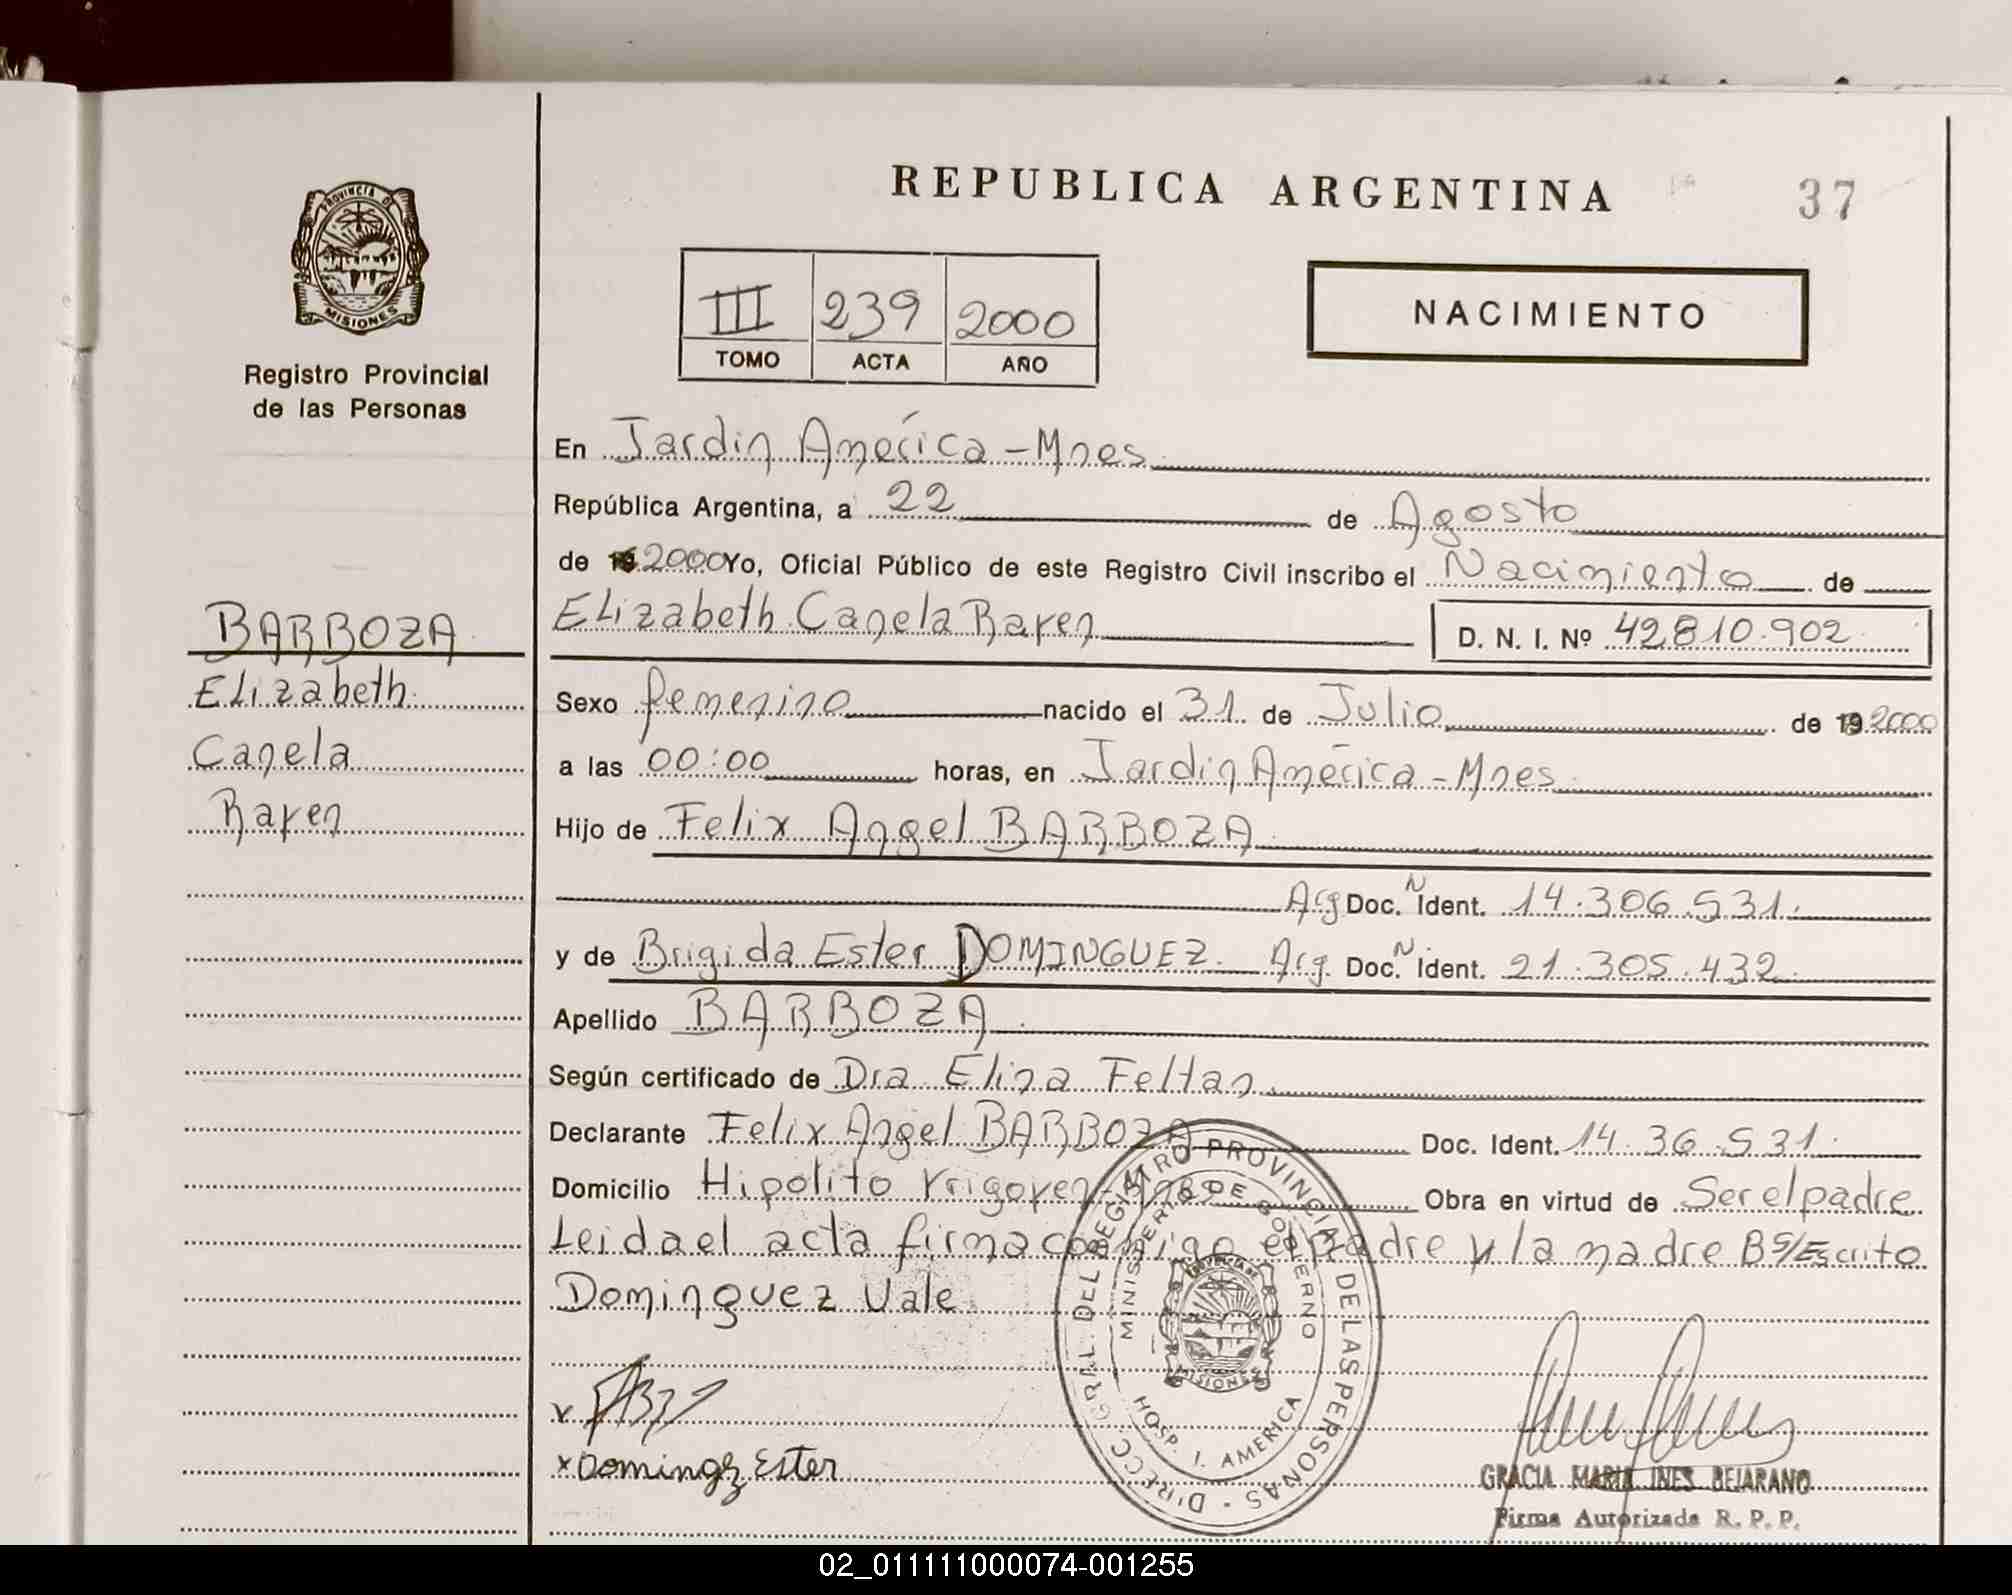 REPUBLICA ARGENTINA
37
PROVINCIA DE
MISIONES
Registro Provincial
de las Personas
III 239 2000
TOMO ACTA AÑO
NACIMIENTO
En Jardin América - Mnes
República Argentina, a 22 de Agosto
de 19 2000 Yo, Oficial Público de este Registro Civil inscribo el Nacimiento de
Elizabeth Canela Karen D. N. I. Nº 42810.902
BARBOZA
Elizabeth
Canela
Karen
Sexo femenino nacido el 31 de Julio de 19 2000
a las 00:00 horas, en Jardin América - Mnes
Hijo de Felix Angel BARBOZA
Arg Doc. N Ident. 14.306.531.
y de Brigida Ester DOMINGUEZ. Arg. Doc. N Ident. 21.305.432
Apellido BARBOZA
Según certificado de Dra Elina Feltan
Declarante Felix Angel BARBOZA Doc. Ident. 14.36.531.
Domicilio Hipolito Yrigoyen Obra en virtud de Ser el padre
Leida el acta firma conmigo el padre y la madre Bs/Escrito
Dominguez Vale
x Domingz Ester
DIRECC. GRAL. DEL REGISTRO PROVINCIAL DE LAS PERSONAS
MINISTERIO DE GOBIERNO
PROVINCIA DE
MISIONES
HOSP. J. AMERICA
GRACIA MARIA INES BEJARANO
Firma Autorizada R. P. P.
02_011111000074-001255